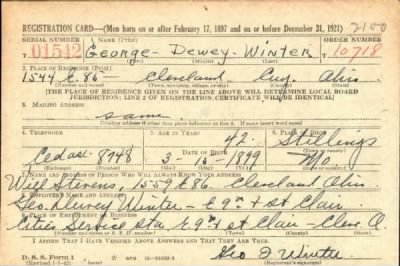 REGISTRATION CARD—(Men born on or after February 17, 1897 and on or before December 31, 1921) 2100
SERIAL NUMBER 1. NAME (Print) ORDER NUMBER
01542 George - Dewey - Winter 10718
(First) (Middle) (Last)
2. PLACE OF RESIDENCE (Print)
1544 E. 86 — Cleveland Cuy. Ohio
(Number and street) (Town, township, village, or city) (County) (State)
[THE PLACE OF RESIDENCE GIVEN ON THE LINE ABOVE WILL DETERMINE LOCAL BOARD
JURISDICTION; LINE 2 OF REGISTRATION CERTIFICATE WILL BE IDENTICAL]
3. MAILING ADDRESS
same
[Mailing address if other than place indicated on line 2. If same insert word same]
4. TELEPHONE 5. AGE IN YEARS 6. PLACE OF BIRTH
42 Stillings
DATE OF BIRTH
Cedar 8748 3 - 15 - 1899 Mo
(Exchange) (Number) (Mo.) (Day) (Yr.) (State or country)
7. NAME AND ADDRESS OF PERSON WHO WILL ALWAYS KNOW YOUR ADDRESS
Will Stevens, 1559 E 86 Cleveland Ohio
8. EMPLOYER'S NAME AND ADDRESS
Geo. Dewey Winter — E 9th + St Clair
9. PLACE OF EMPLOYMENT OR BUSINESS
Cities Service Sta. E 9th + St Clair - Cleve. O.
(Number and street or R. F. D. number) (Town) (County) (State)
I AFFIRM THAT I HAVE VERIFIED ABOVE ANSWERS AND THAT THEY ARE TRUE.
D. S. S. Form 1 Geo D Winter